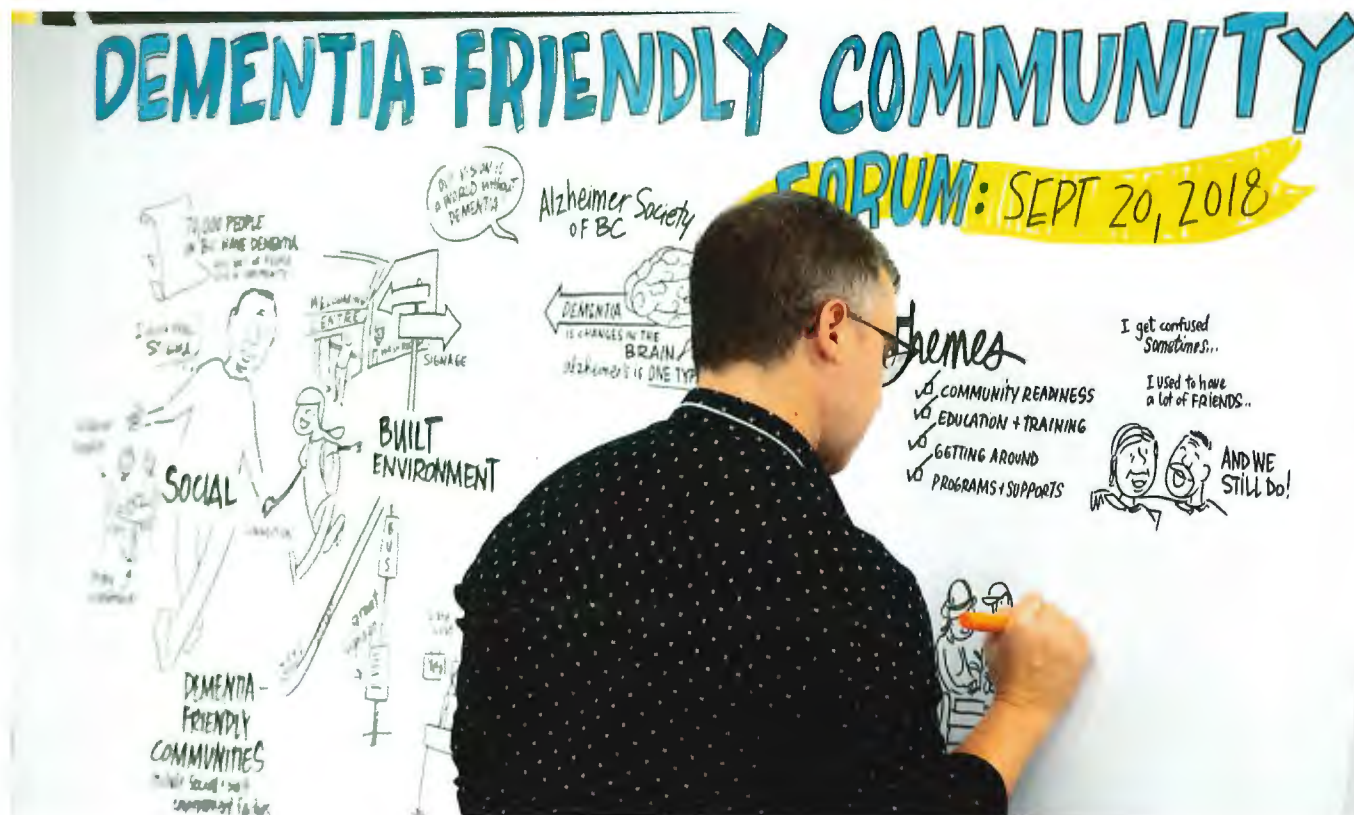 DEMENTIA-FRIENDLY COMMUNITY
FORUM: SEPT 20, 2018
OUR VISION IS
A WORLD without
DEMENTIA
Alzheimer Society
OF BC
70,000 PEOPLE
IN BC HAVE DEMENTIA
SIGNAGE
DEMENTIA
IS CHANGES IN THE
BRAIN
alzheimer's is ONE TYP
BUILT
ENVIRONMENT
SOCIAL
BUS
DEMENTIA-
FRIENDLY
COMMUNITIES
Themes
COMMUNITY READINESS
EDUCATION + TRAINING
GETTING AROUND
PROGRAMS + SUPPORTS
I get confused
sometimes...
I used to have
a lot of FRIENDS...
AND WE
STILL DO!